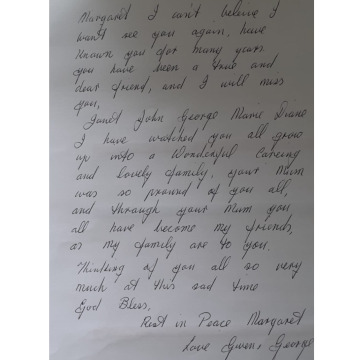 Margaret I can't believe I
wont see you again, have
known you for many years
you have been a true and
dear friend, and I will miss
you,
Janet John George Marie Diane
I have watched you all grow
up into a Wonderful Careing
and lovely family, your Mum
was so pround of you all,
and through your Mum you
all have become my friends,
as my family are to you.
Thinking of you all so very
much at this sad time
God Bless,
Rest in Peace Margaret
Love Gwen, George